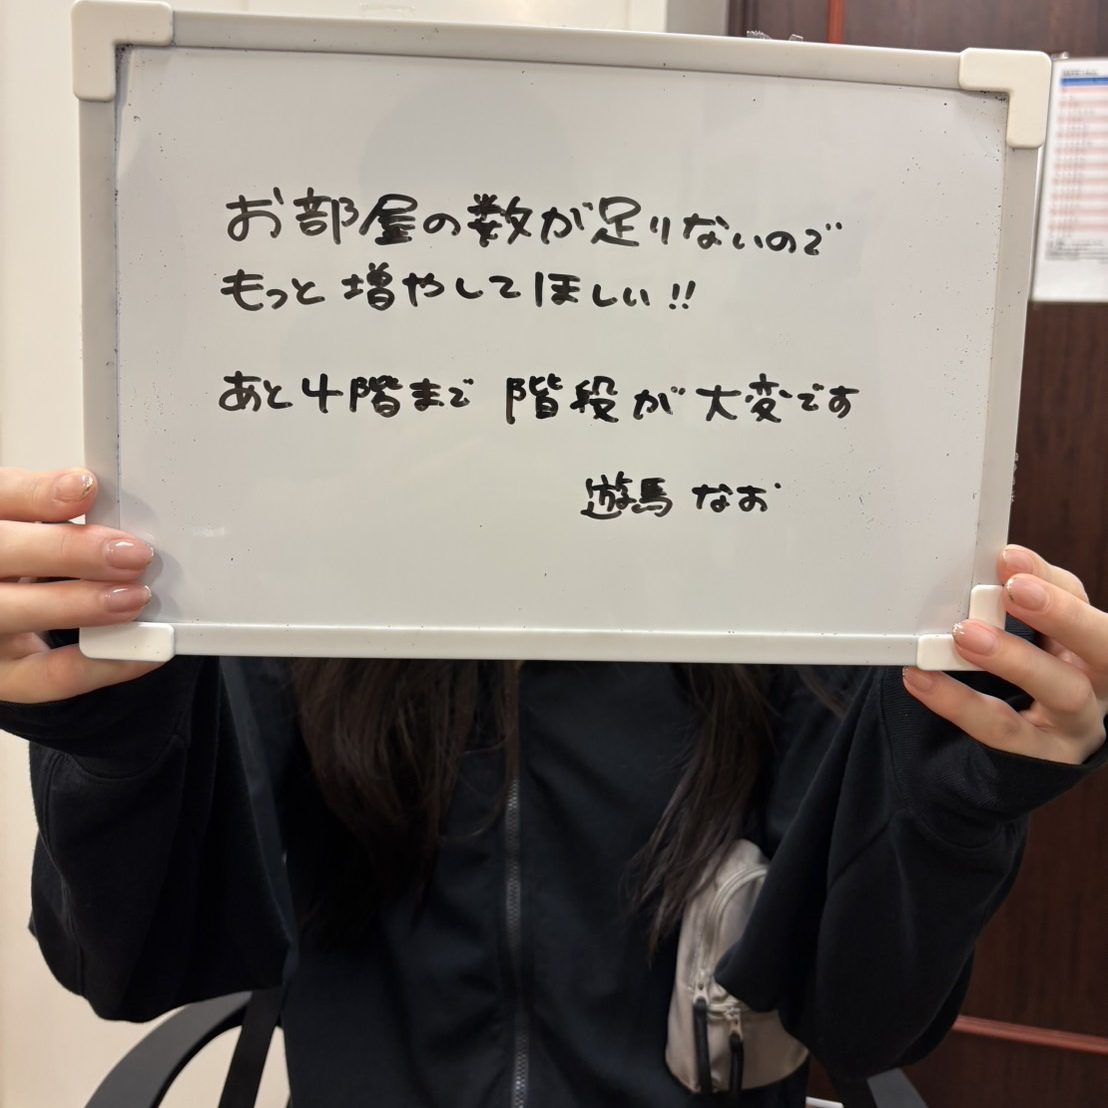 お部屋の数が足りないので
もっと増やしてほしい!!
あと4階まで 階段が大変です
遊馬 なお